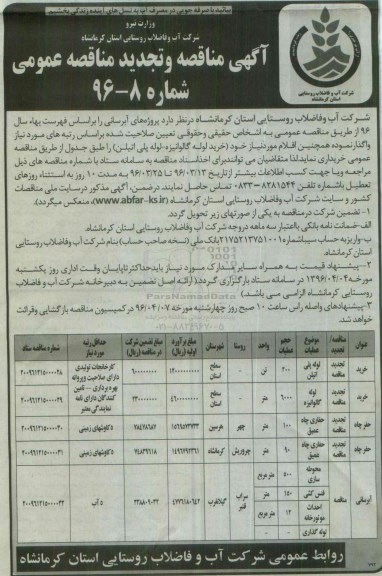 بیائید با صرفه جویی در مصرف آب به نسل های آینده زندگی ببخشیم
وزارت نیرو
شرکت آب و فاضلاب روستایی استان کرمانشاه
آگهی مناقصه وتجدید مناقصه عمومی
شماره ۸-۹۶
شرکت آب و فاضلاب روستایی
استان کرمانشاه
شرکت آب وفاضلاب روستایی استان کرمانشاه درنظر دارد پروژه‌های آبرسانی را براساس فهرست بهاء سال
۹۶ از طریق مناقصه عمومی به اشخاص حقیقی وحقوقی تعیین صلاحیت شده براساس رتبه های مورد نیاز
واگذارنموده همچنین اقلام موردنیاز خود (خرید لوله گالوانیزه- لوله پلی اتیلن) را طبق جدول از طریق مناقصه
عمومی خریداری نماید لذا متقاضیان می توانند برای اخذ اسناد مناقصه به سامانه ستاد با شماره مناقصه های ذیل
مراجعه ویا جهت کسب اطلاعات بیشتر از تاریخ ۹۶/۰۳/۱۳ تا ۹۶/۰۳/۲۵ به مدت ۱۰ روز به استثناء روزهای
تعطیل باشماره تلفن ۳۸۲۸۱۵۴۴-۰۸۳ تماس حاصل نمایند. درضمن، آگهی مذکور درسایت ملی مناقصات
کشور و سایت شرکت آب وفاضلاب روستایی استان کرمانشاه (www.abfar-ks.ir)، منعکس میگردد.
۱- تضمین شرکت درمناقصه به یکی از صورتهای زیر تحویل گردد.
الف-ضمانت نامه بانکی بااعتبار سه ماهه دروجه شرکت آب وفاضلاب روستایی استان کرمانشاه
ب- واریز به حساب سیبا شماره بانک ملی (نسخه صاحب حساب) بنام شرکت آب وفاضلاب روستایی
استان کرمانشاه.
۲- پیشنهاد قیمت به همراه سایر مدارک مورد نیاز باید حداکثر تا پایان وقت اداری روز یکشنبه
مورخه ۱۳۹۶/۰۴/۰۴ در سامانه ستاد بارگزاری گردد. (ارائه اصل تضمین به دبیرخانه شرکت آب و فاضلاب
روستایی کرمانشاه الزامی می باشد.)
۳- پیشنهادهای واصله راس ساعت ۱۰ صبح روز چهارشنبه مورخه ۹۶/۰۴/۰۷ در کمیسیون مناقصه بازگشایی وقرائت
خواهد شد.
عنوان مناقصه/ تجدید موضوع عملیات حجم عملیات واحد روستا شهرستان مبلغ برآورد اولیه (ریال) مبلغ تضمین شرکت در مناقصه (ریال) حداقل رتبه مورد نیاز شماره مناقصه ستاد
خرید تجدید مناقصه لوله پلی اتیلن ۲۰۰ تن - سطح استان کارخانجات تولیدی دارای صلاحیت وپروانه بهره برداری
خرید تجدید مناقصه لوله گالوانیزه ۶۰۰۰ متر - سطح استان تامین کنندگان دارای نامه نمایندگی معتبر
حفر چاه تجدید مناقصه حفاری چاه عمیق ۱۰۰ متر چهر هرسین دکاوشهای زمینی
حفر چاه تجدید مناقصه حفاری چاه عمیق ۹۰ متر کرمانشاه دکاوشهای زمینی
آبرسانی مناقصه محوطه سازی ۵۰۰ مترمربع سراب قنبر گیلانغرب ۵ آب
فنس کشی ۱۵۰ متر
احداث موتورخانه ۱۲ مترمربع
لوله گذاری - -
روابط عمومی شرکت آب و فاضلاب روستایی استان کرمانشاه